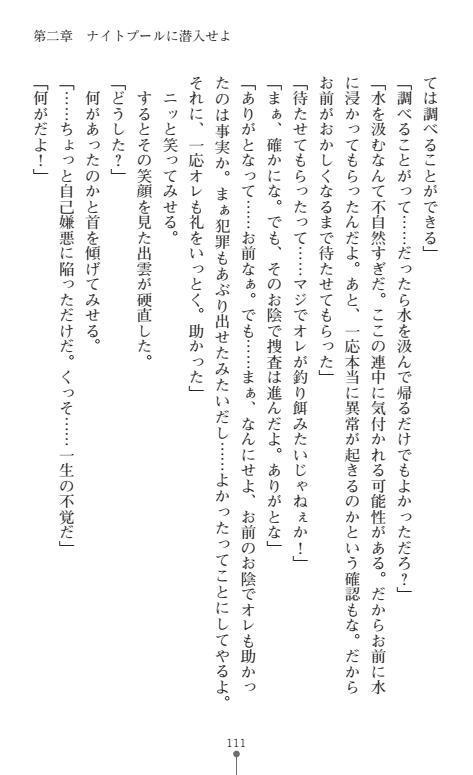 第二章　ナイトプールに潜入せよ
ては調べることができる」
「調べることがって……だったら水を汲んで帰るだけでもよかっただろ？」
「水を汲むなんて不自然すぎだ。ここの連中に気付かれる可能性がある。だからお前に水
に浸かってもらったんだよ。あと、一応本当に異常が起きるのかという確認もな。だから
お前がおかしくなるまで待たせてもらった」
「待たせてもらったって……マジでオレが釣り餌みたいじゃねぇか！」
「まぁ、確かにな。でも、そのお陰で捜査は進んだよ。ありがとな」
「ありがとなって……お前なぁ。でも……まぁ、なんにせよ、お前のお陰でオレも助かっ
たのは事実か。まぁ犯罪もあぶり出せたみたいだし……よかったってことにしてやるよ。
それに、一応オレも礼をいっとく。助かった」
ニッと笑ってみせる。
するとその笑顔を見た出雲が硬直した。
「どうした？」
何があったのかと首を傾げてみせる。
「……ちょっと自己嫌悪に陥っただけだ。くっそ……一生の不覚だ」
「何がだよ！」
111